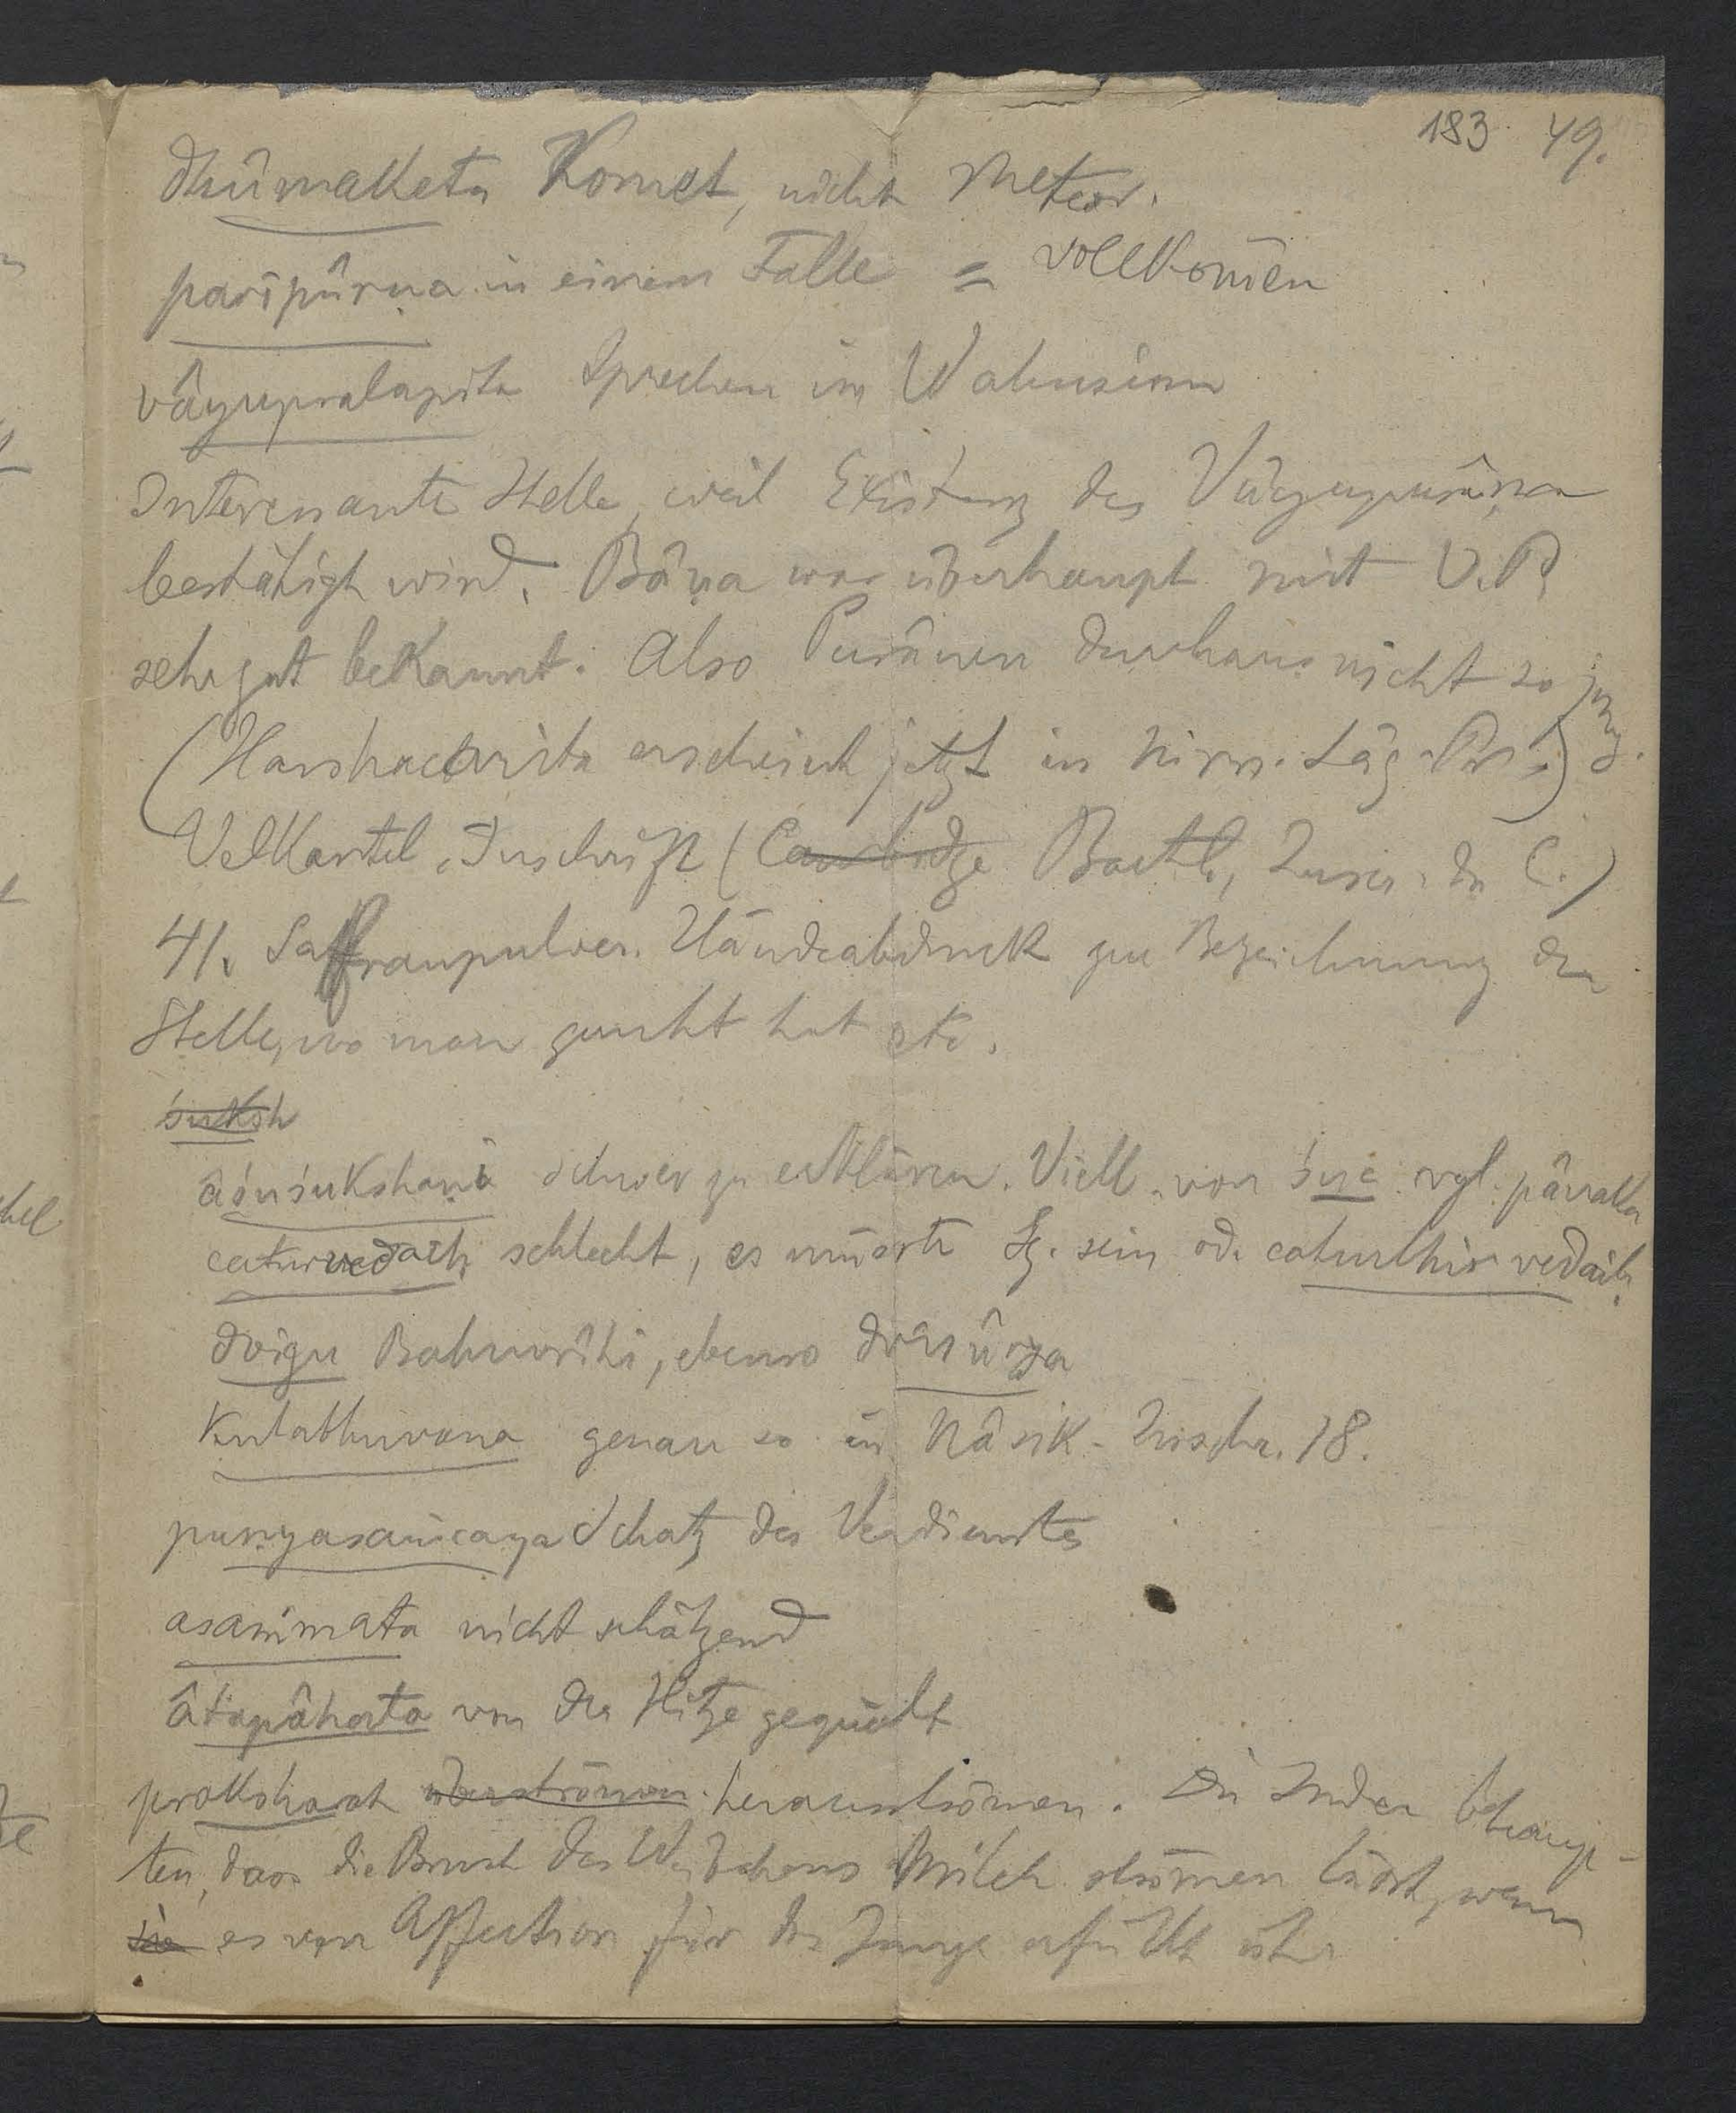 183 49.
dhûmaketu Komet, nicht Meteor.
paripûrṇa in einem Falle = vollkom̄en
vâyupralapita Sprechen im Wahnsinn
Interessante Stelle, weil Existenz des Vâyupurâṇa
bestätigt wird. Bâṇa war überhaupt mit V.P.
sehr gut bekannt. Also Purânen durchaus nicht so jung.
(Harshacarita erscheint jetzt in Nirṇ. Sâg. Pr.)
Inschrift (Cambridge Boethl., Inscr. du C.)
41. Saffranpulver. Händeabdruck zur Bezeichnung der
Stelle, wo man geruht hat etc.
śuksh
âśuśukshaṇi schwer zu erklären. Viell. von śuc vgl. pâvaka
caturvedaiḥ schlecht, es müsste Sg. sein od. caturbhir vedaiḥ.
dvigu Bahuvrîhi, ebenso
Kulabhuvana genau so in Nâsik-Inschr. 18.
puṇyasaṁcaya Schatz des Verdienstes
asaṁmata nicht schätzend
âtapâhata von der Hitze gequält
praksharat überströmen herausströmen. Die Inder behaup-
ten, dass die Brust des Weibchens Milch strömen lässt, wenn
sie es von Affection für das Junge erfüllt ist.